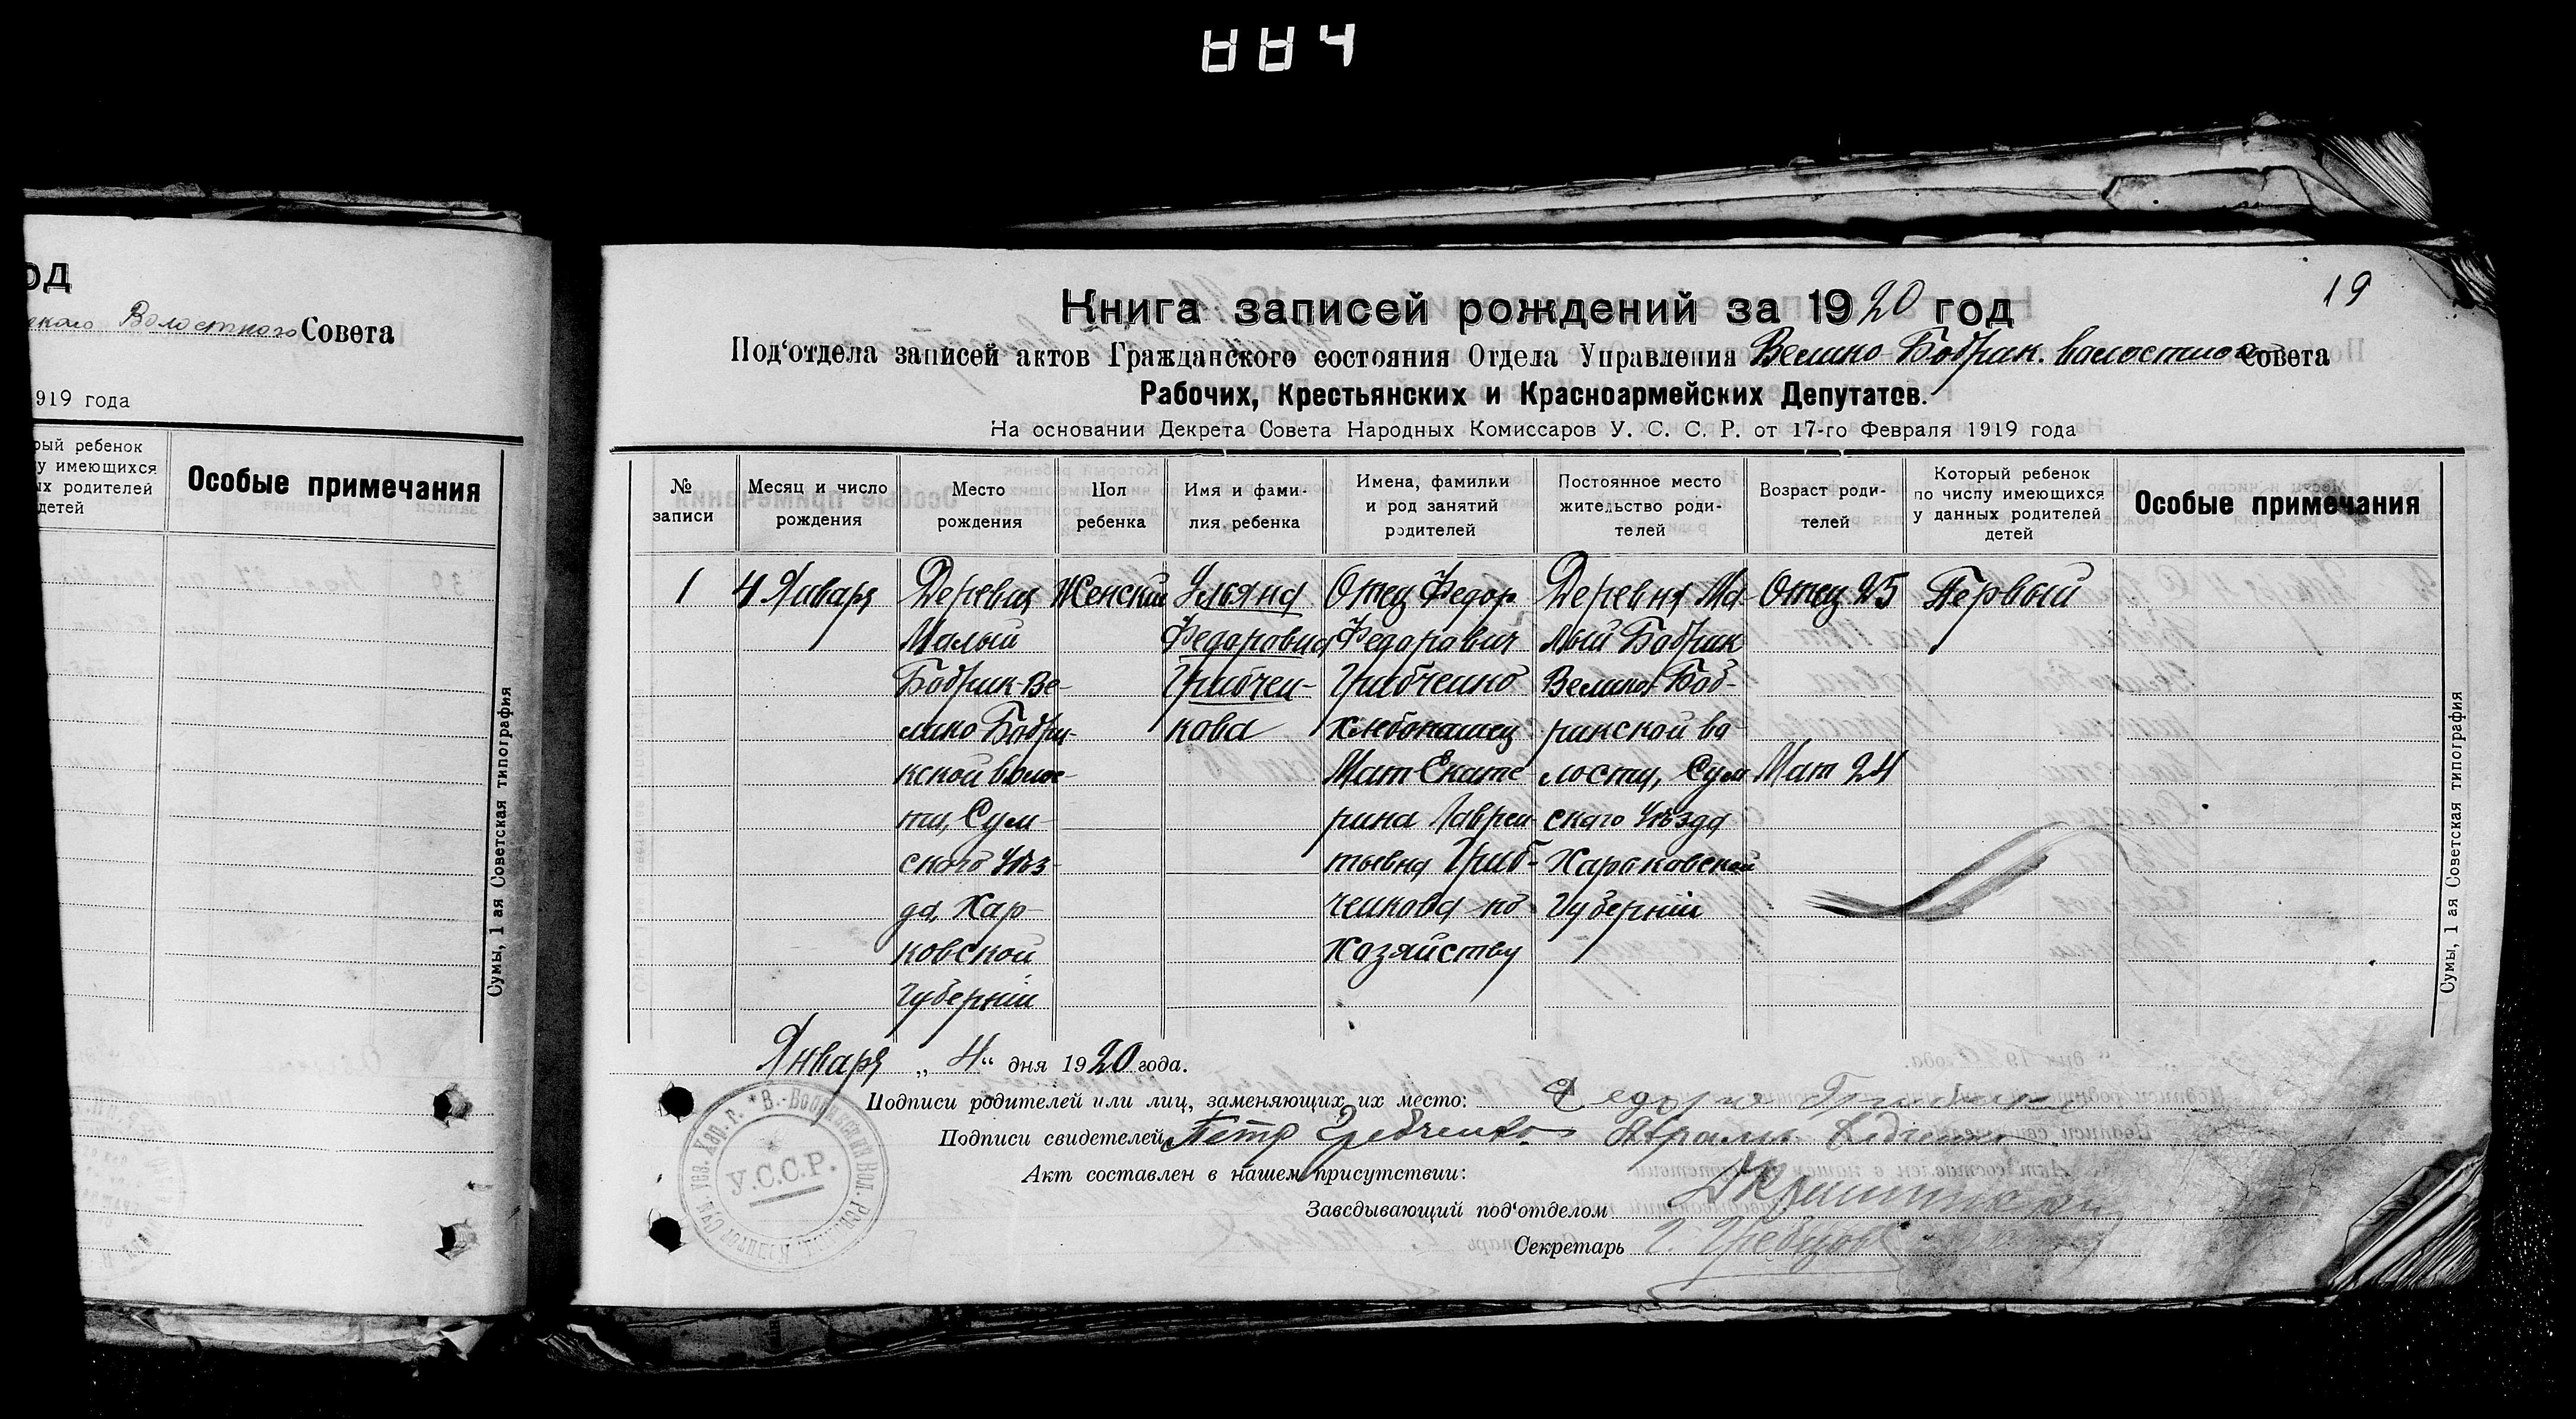 884
од
Волостного Совета
1919 года
рый ребенок
у имеющихся
их родителей
детей
Особые примечания
Сумы, 1 ая Советская типография
19
Книга записей рождений за 1920 год
Под'отдела записей актов Гражданского состояния Отдела Управления Велико-Бобрик. волостного Совета
Рабочих, Крестьянских и Красноармейских Депутатов.
На основании Декрета Совета Народных Комиссаров У. С. С. Р. от 17-го Февраля 1919 года
№ записи
Месяц и число рождения
Место рождения
Пол ребенка
Имя и фами-
лия ребенка
Имена, фамилии
и род занятий
родителей
Постоянное место
жительство роди-
телей
Возраст роди-
телей
Который ребенок
по числу имеющихся
у данных родителей
детей
Особые примечания
1
4 Января
Деревня
Малый
Бобрик Ве-
лико Бобри-
кской волос-
ти, Сум-
ского Уѣз-
да, Хар-
ковской
Губерніи
Женский
Ульяна
Федоровна
Грибчен-
кова
Отец Федор
Федорович
Грибченко
хлебопашец
Мат Екате
рина Лаврен
тьевна Гриб-
ченкова по
Хозяйству
Деревня Ма-
лый Бобрик
Велико Боб-
рикской во-
лости, Сум
ского Уѣзда
Харьковской
Губерніи
Отец 25
Мат 24
Первый
Января „4“ дня 1920 года.
Подписи родителей или лиц, заменяющих их место:
Подписи свидетелей Петр Гребченко
Акт составлен в нашем присутствии:
Заведывающий под'отделом
Секретарь
У.С.С.Р.
Сумы, 1 ая Советская типография